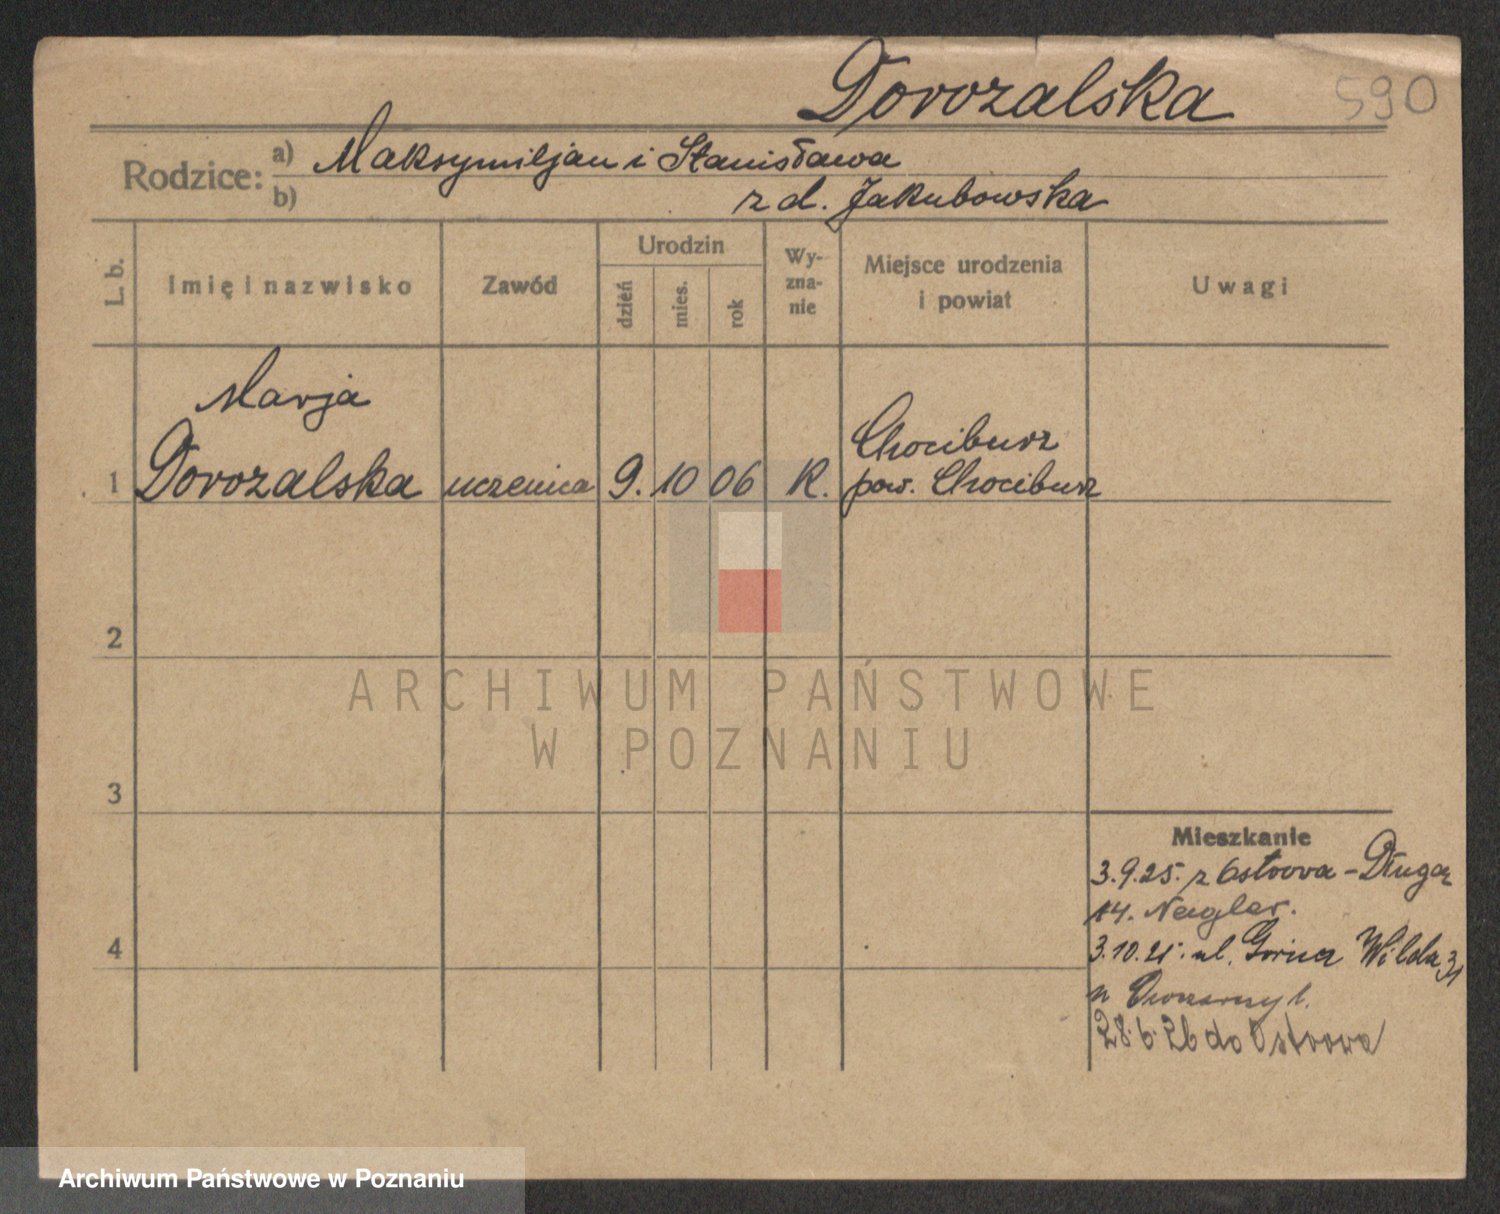 Dorozalska 590
Rodzice: a) Maksymiljan i Stanisława
b) z d. Jakubowska
L. b.
Imię i nazwisko
Zawód
Urodzin
dzień
mies.
rok
Wy-
zna-
nie
Miejsce urodzenia
i powiat
Uwagi
Marja
Chociburz
1 Dorozalska uczenica 9. 10 06 R. pow. Chociburz
2
3
4
ARCHIWUM PAŃSTWOWE
W POZNANIU
Mieszkanie
3.9.25. z Ostrowa - Długa
14.
3.10.25. ul. Górna Wilda 31
u
28.6.26 do Ostrowa
Archiwum Państwowe w Poznaniu